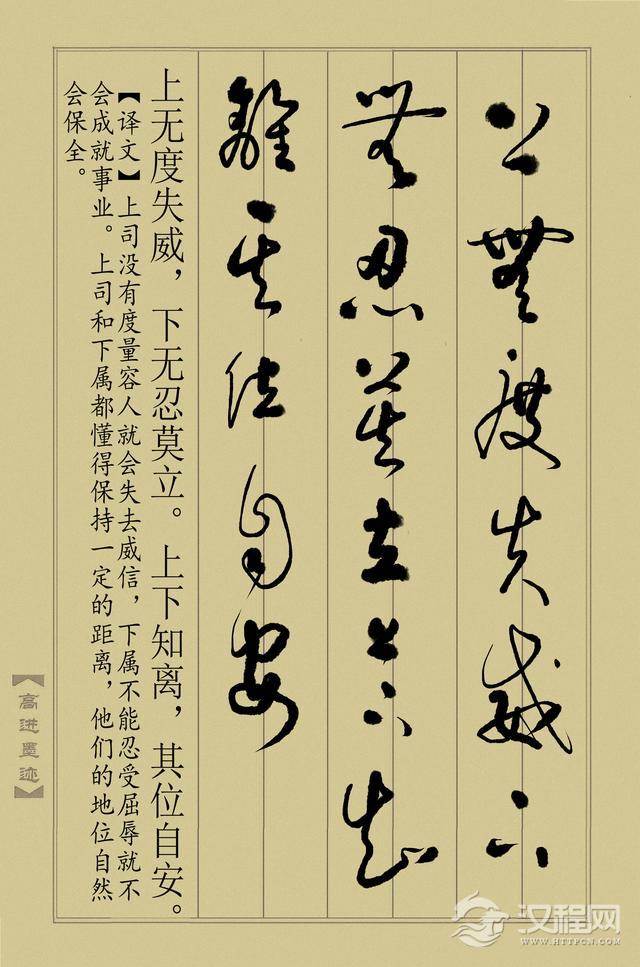 上無度失威下
無忍莫立上下知
離其位自安
上无度失威，下无忍莫立。上下知离，其位自安。
【译文】上司没有度量容人就会失去威信，下属不能忍受屈辱就不
会成就事业。上司和下属都懂得保持一定的距离，他们的地位自然
会保全。
【高进墨迹】
汉程网
WWW.HTTPCN.COM